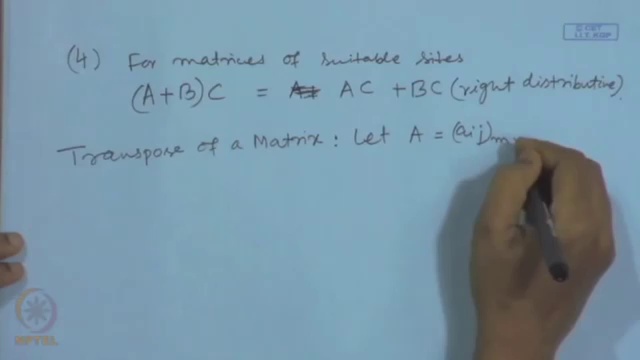 © CET
I.I.T. KGP
(4) For matrices of suitable sizes
(A+B)C = AC + BC (right distributive)
Transpose of a Matrix : Let A = (aij)m
NPTEL